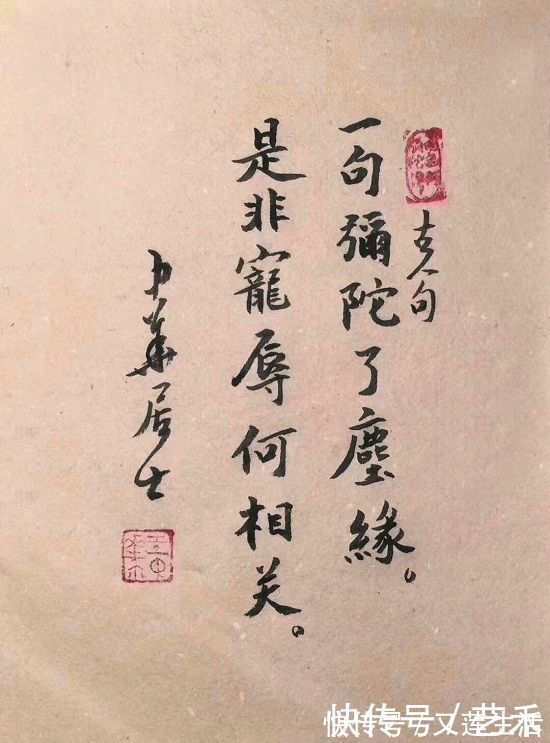 古人句
一句彌陀了塵緣。
是非寵辱何相关。
華居士
快传号/艺禾